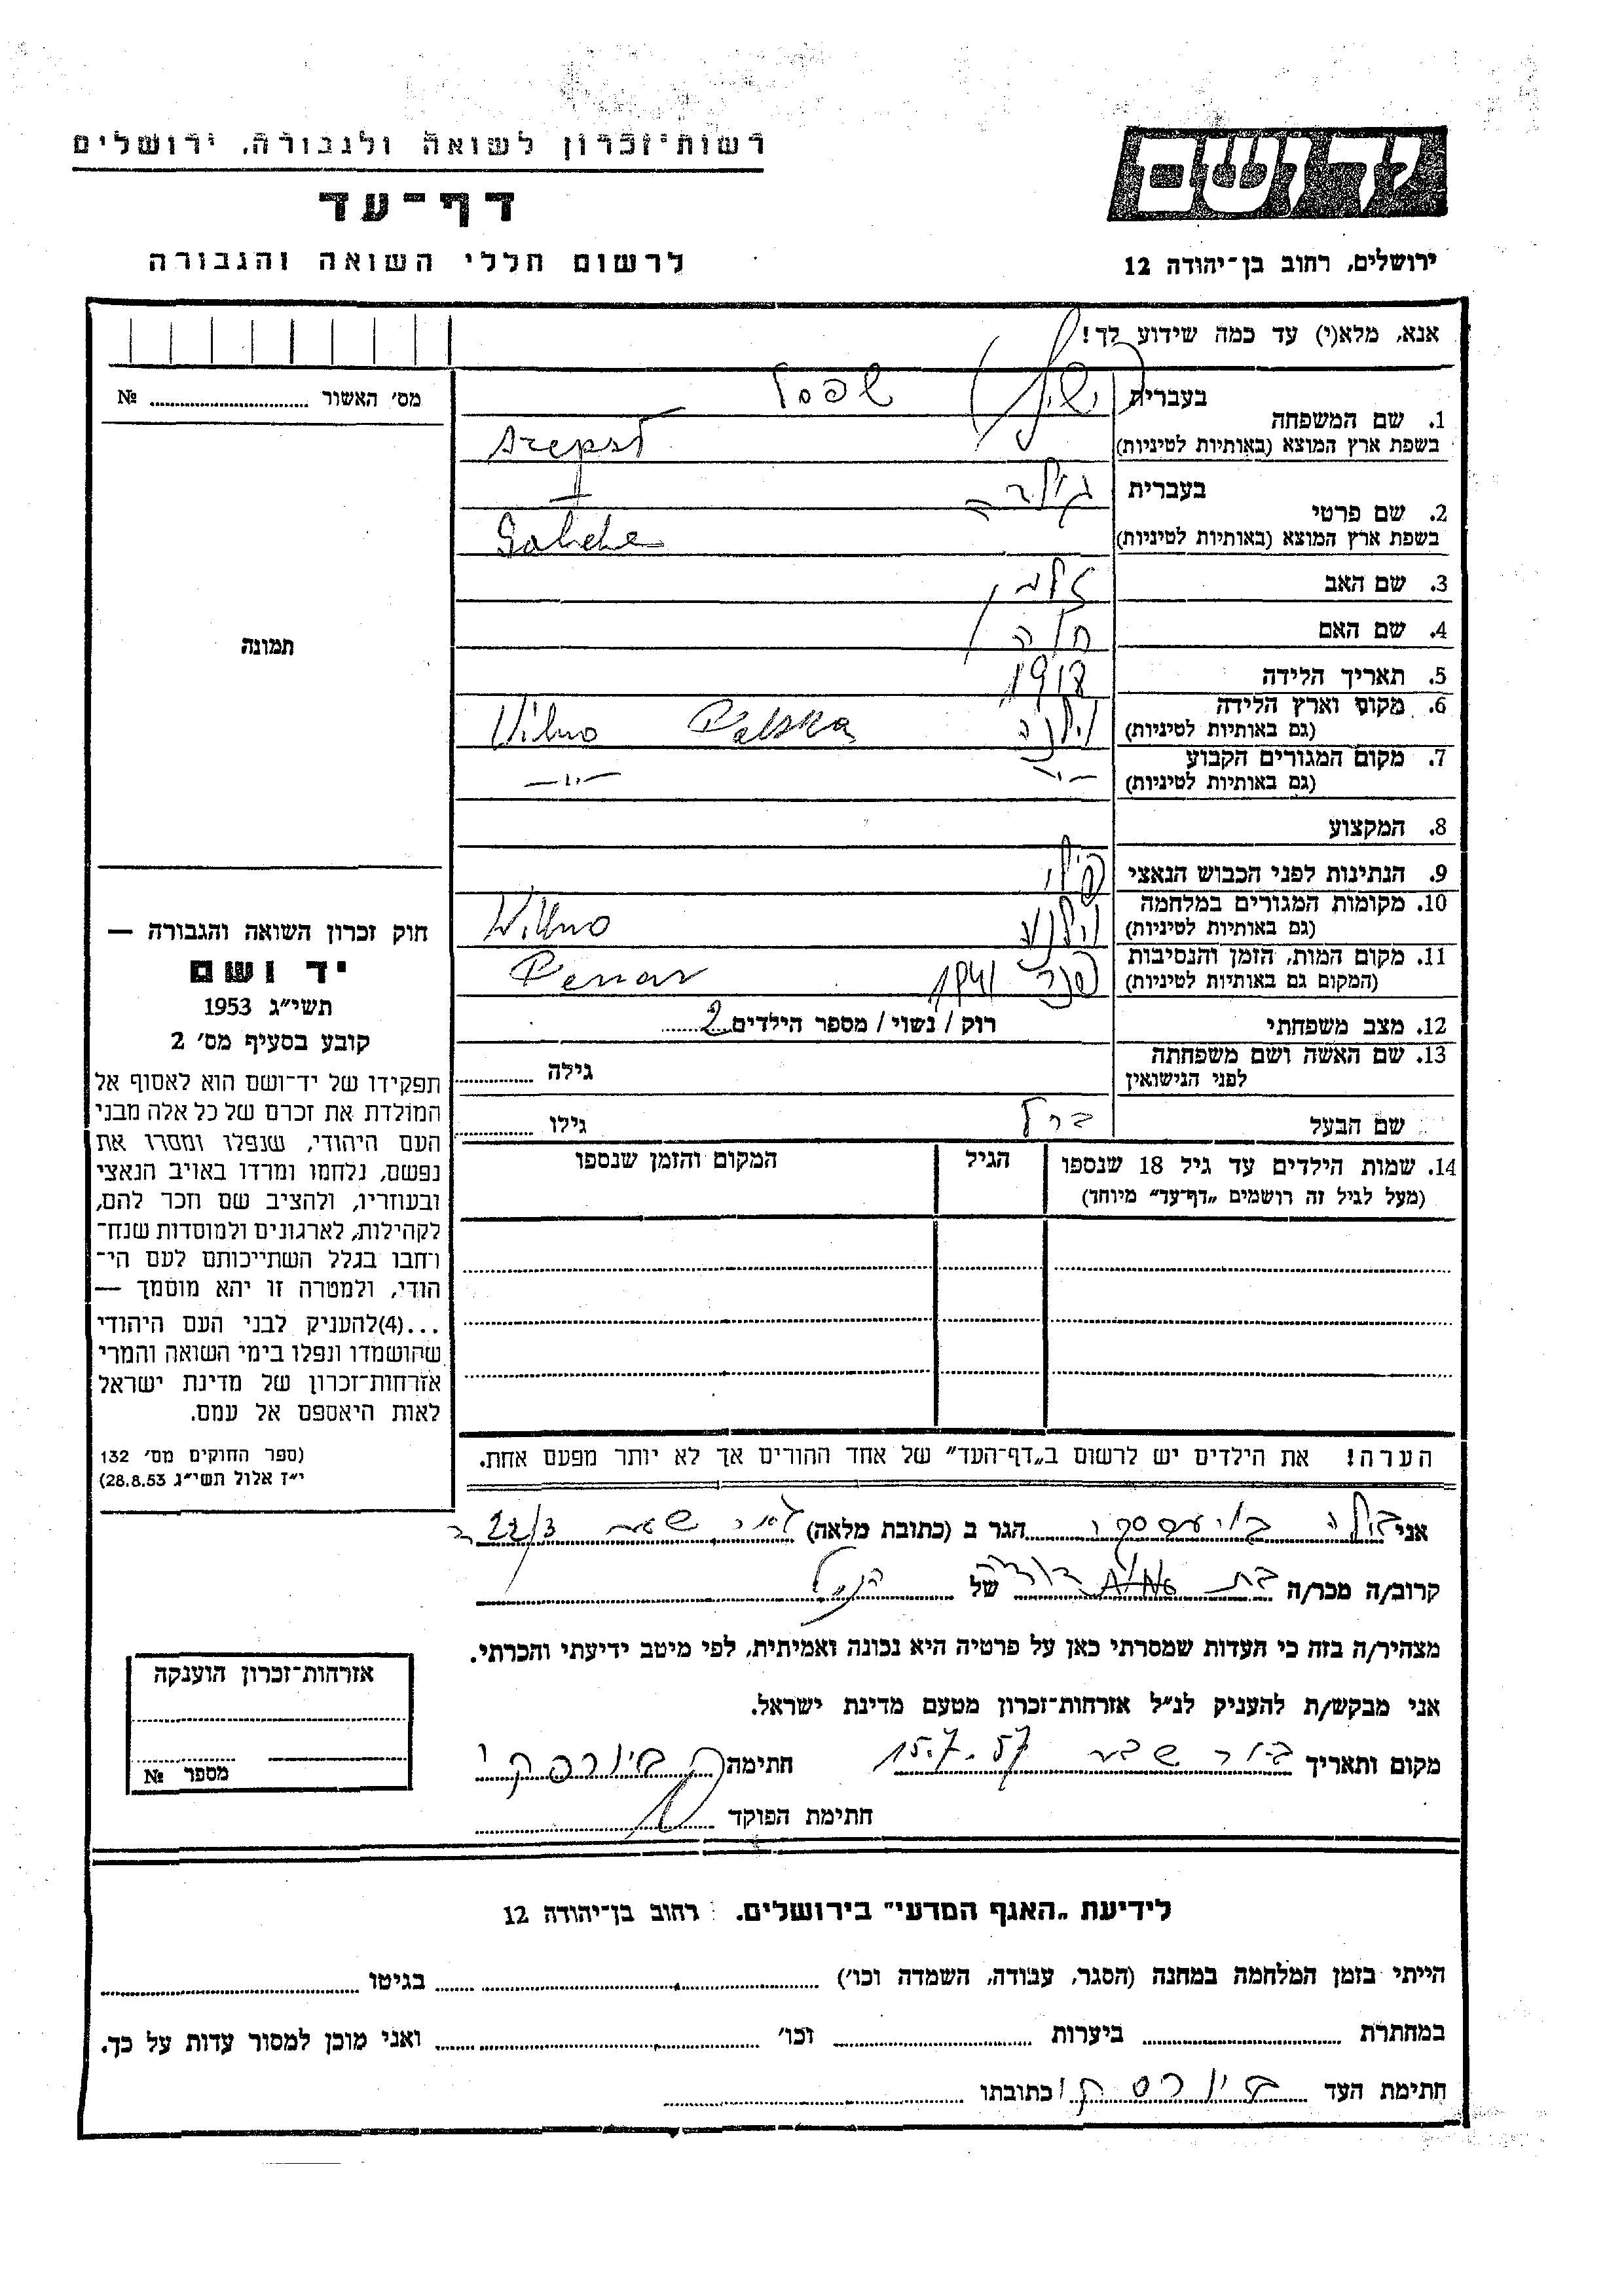 רשות־זכרון לשואה ולגבורה, ירושלים
יד ושם
דף־עד
לרשום חללי השואה והגבורה
ירושלים, רחוב בן־יהודה 12
אנא, מלא(י) עד כמה שידוע לך!
מס׳ האשור № ........
1. שם המשפחה בעברית שפסל
בשפת ארץ המוצא (באותיות לטיניות)
2. שם פרטי בעברית
בשפת ארץ המוצא (באותיות לטיניות)
3. שם האב זלמן
4. שם האם חיה
5. תאריך הלידה 1918
6. מקום וארץ הלידה (גם באותיות לטיניות) וילנה Polska Vilno
7. מקום המגורים הקבוע (גם באותיות לטיניות) -"- -"-
8. המקצוע
9. הנתינות לפני הכבוש הנאצי פולני
10. מקומות המגורים במלחמה (גם באותיות לטיניות) וילנע Vilno
11. מקום המות, הזמן והנסיבות (המקום גם באותיות לטיניות) פונר 1941 Ponar
12. מצב משפחתי רוק / נשוי / מספר הילדים 2
13. שם האשה ושם משפחתה לפני הנישואין גילה ........
שם הבעל ברל גילו ........
14. שמות הילדים עד גיל 18 שנספו הגיל המקום והזמן שנספו
(מעל לגיל זה רושמים „דף־עד״ מיוחד)
הערה! את הילדים יש לרשום ב„דף־העד״ של אחד ההורים אך לא יותר מפעם אחת.
תמונה
חוק זכרון השואה והגבורה —
יד ושם
תשי״ג 1953
קובע בסעיף מס׳ 2
תפקידו של יד־ושם הוא לאסוף אל
המולדת את זכרם של כל אלה מבני
העם היהודי, שנפלו ומסרו את
נפשם, נלחמו ומרדו באויב הנאצי
ובעוזריו, ולהציב שם וזכר להם,
לקהילות, לארגונים ולמוסדות שנח־
רחבו בגלל השתייכותם לעם הי־
הודי, ולמטרה זו יהא מוסמך —
...(4)להעניק לבני העם היהודי
שהושמדו ונפלו בימי השואה והמרי
אזרחות־זכרון של מדינת ישראל
לאות היאספם אל עמם.
(ספר החוקים מס׳ 132
י״ז אלול תשי״ג 28.8.53)
אני ........ הגר ב (כתובת מלאה) באר שבע 22/3
קרוב/ה מכר/ה בת דודה של הנ״ל
מצהיר/ה בזה כי העדות שמסרתי כאן על פרטיה היא נכונה ואמיתית, לפי מיטב ידיעתי והכרתי.
אני מבקש/ת להעניק לנ״ל אזרחות־זכרון מטעם מדינת ישראל.
מקום ותאריך באר שבע 15.7.57 חתימה
חתימת הפוקד
אזרחות־זכרון הוענקה
מספר №
לידיעת „האגף המדעי״ בירושלים. רחוב בן־יהודה 12
הייתי בזמן המלחמה במחנה (הסגר, עבודה, השמדה וכו׳) ........ בגיטו ........
במחתרת ........ ביערות ........ וכו׳ ........ ואני מוכן למסור עדות על כך.
חתימת העד ........ כתובתו ........